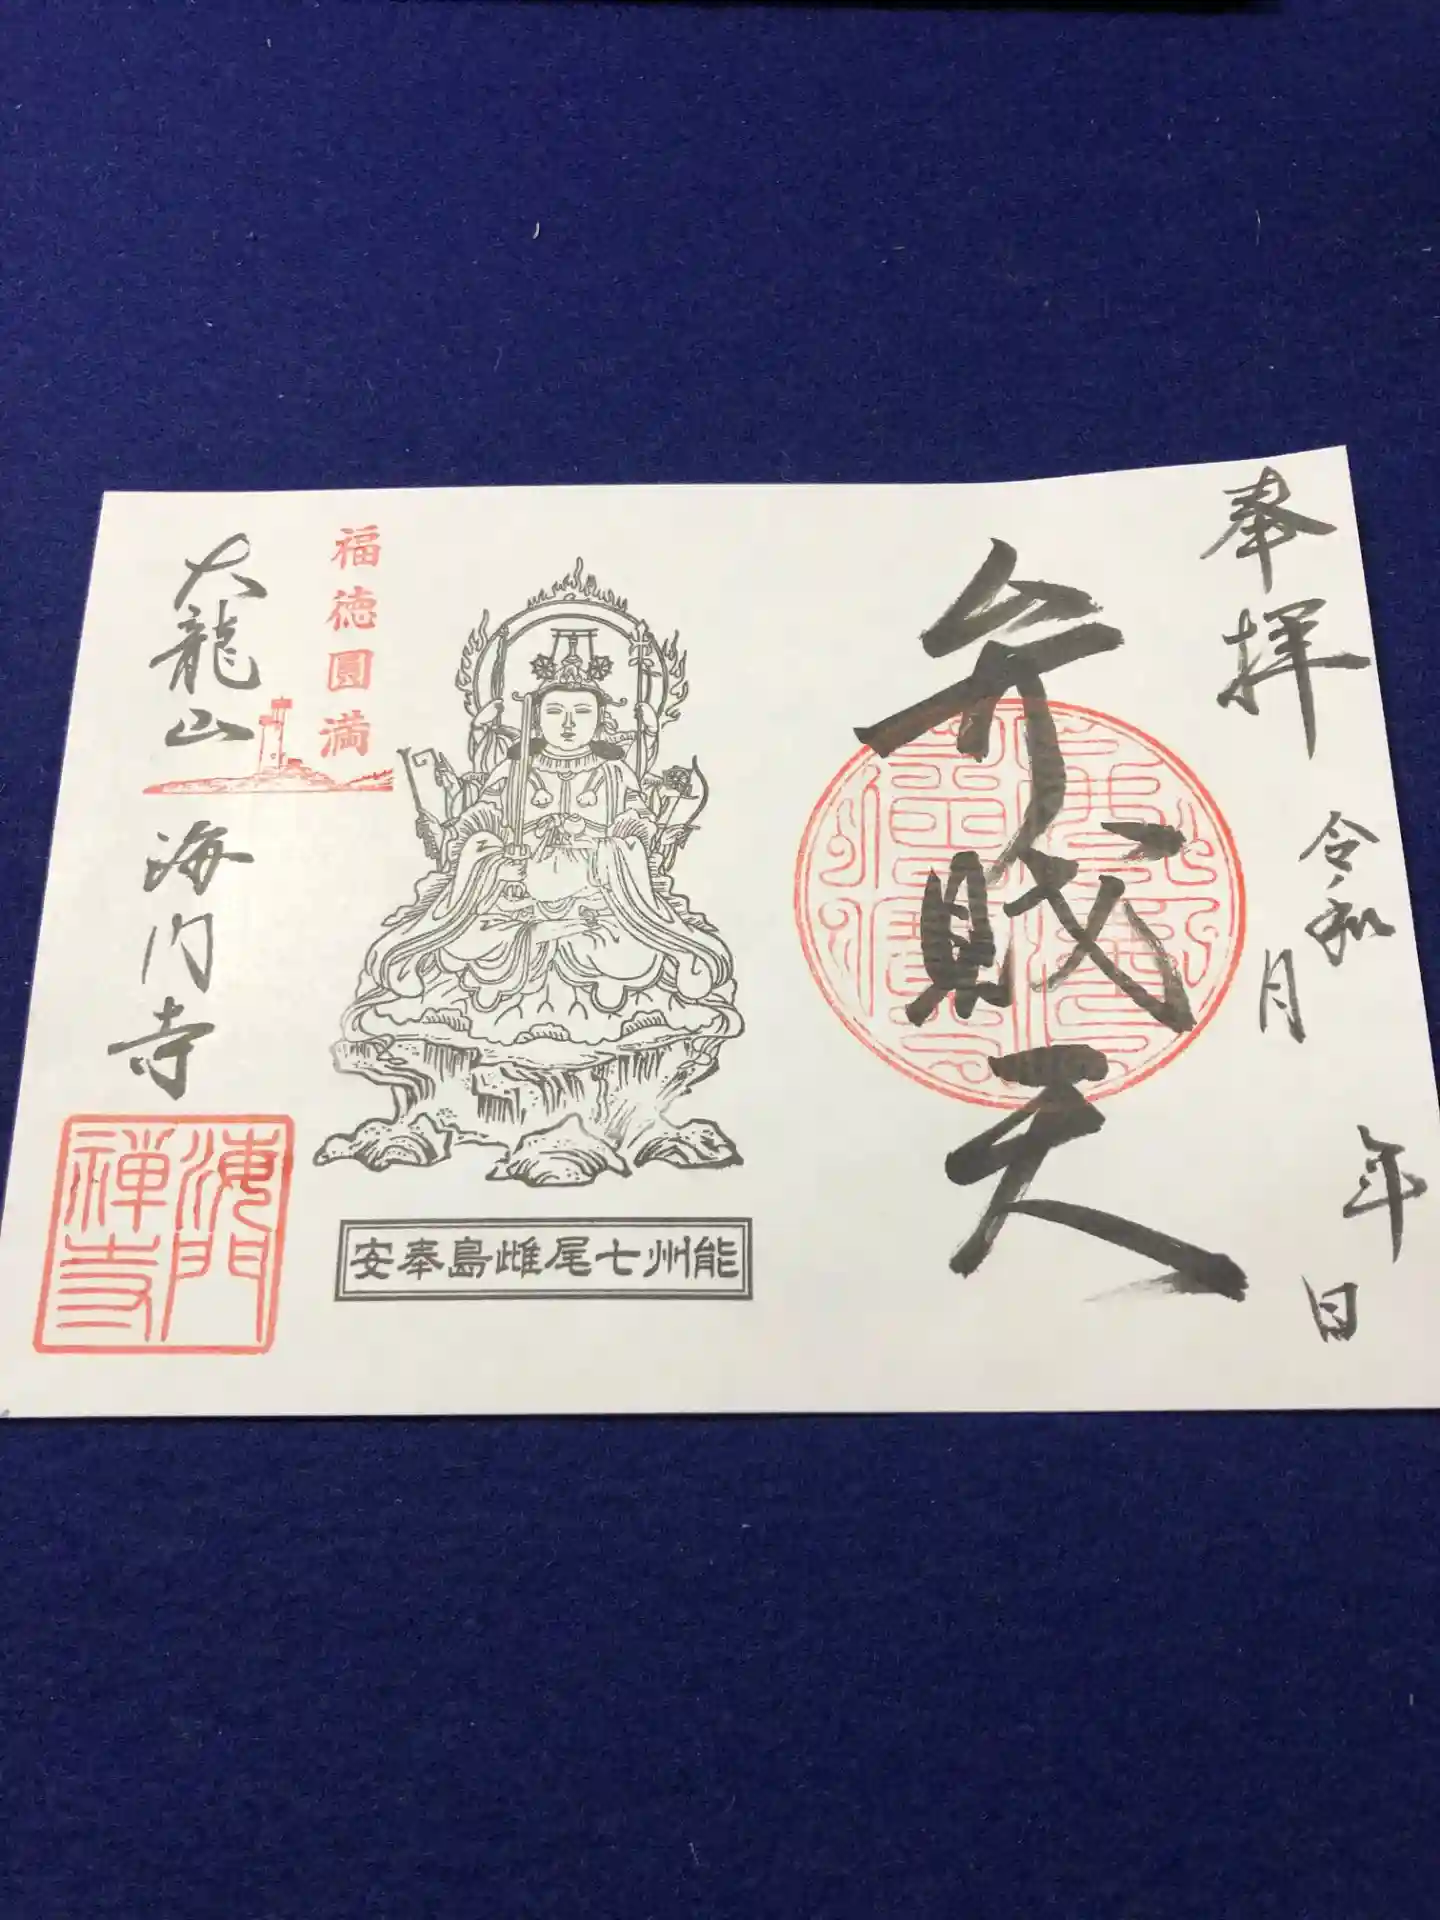 奉拝
令和 年
月 日
弁財天
福徳圓満
大龍山
海門寺
能州七尾雌島奉安
海門
禅寺